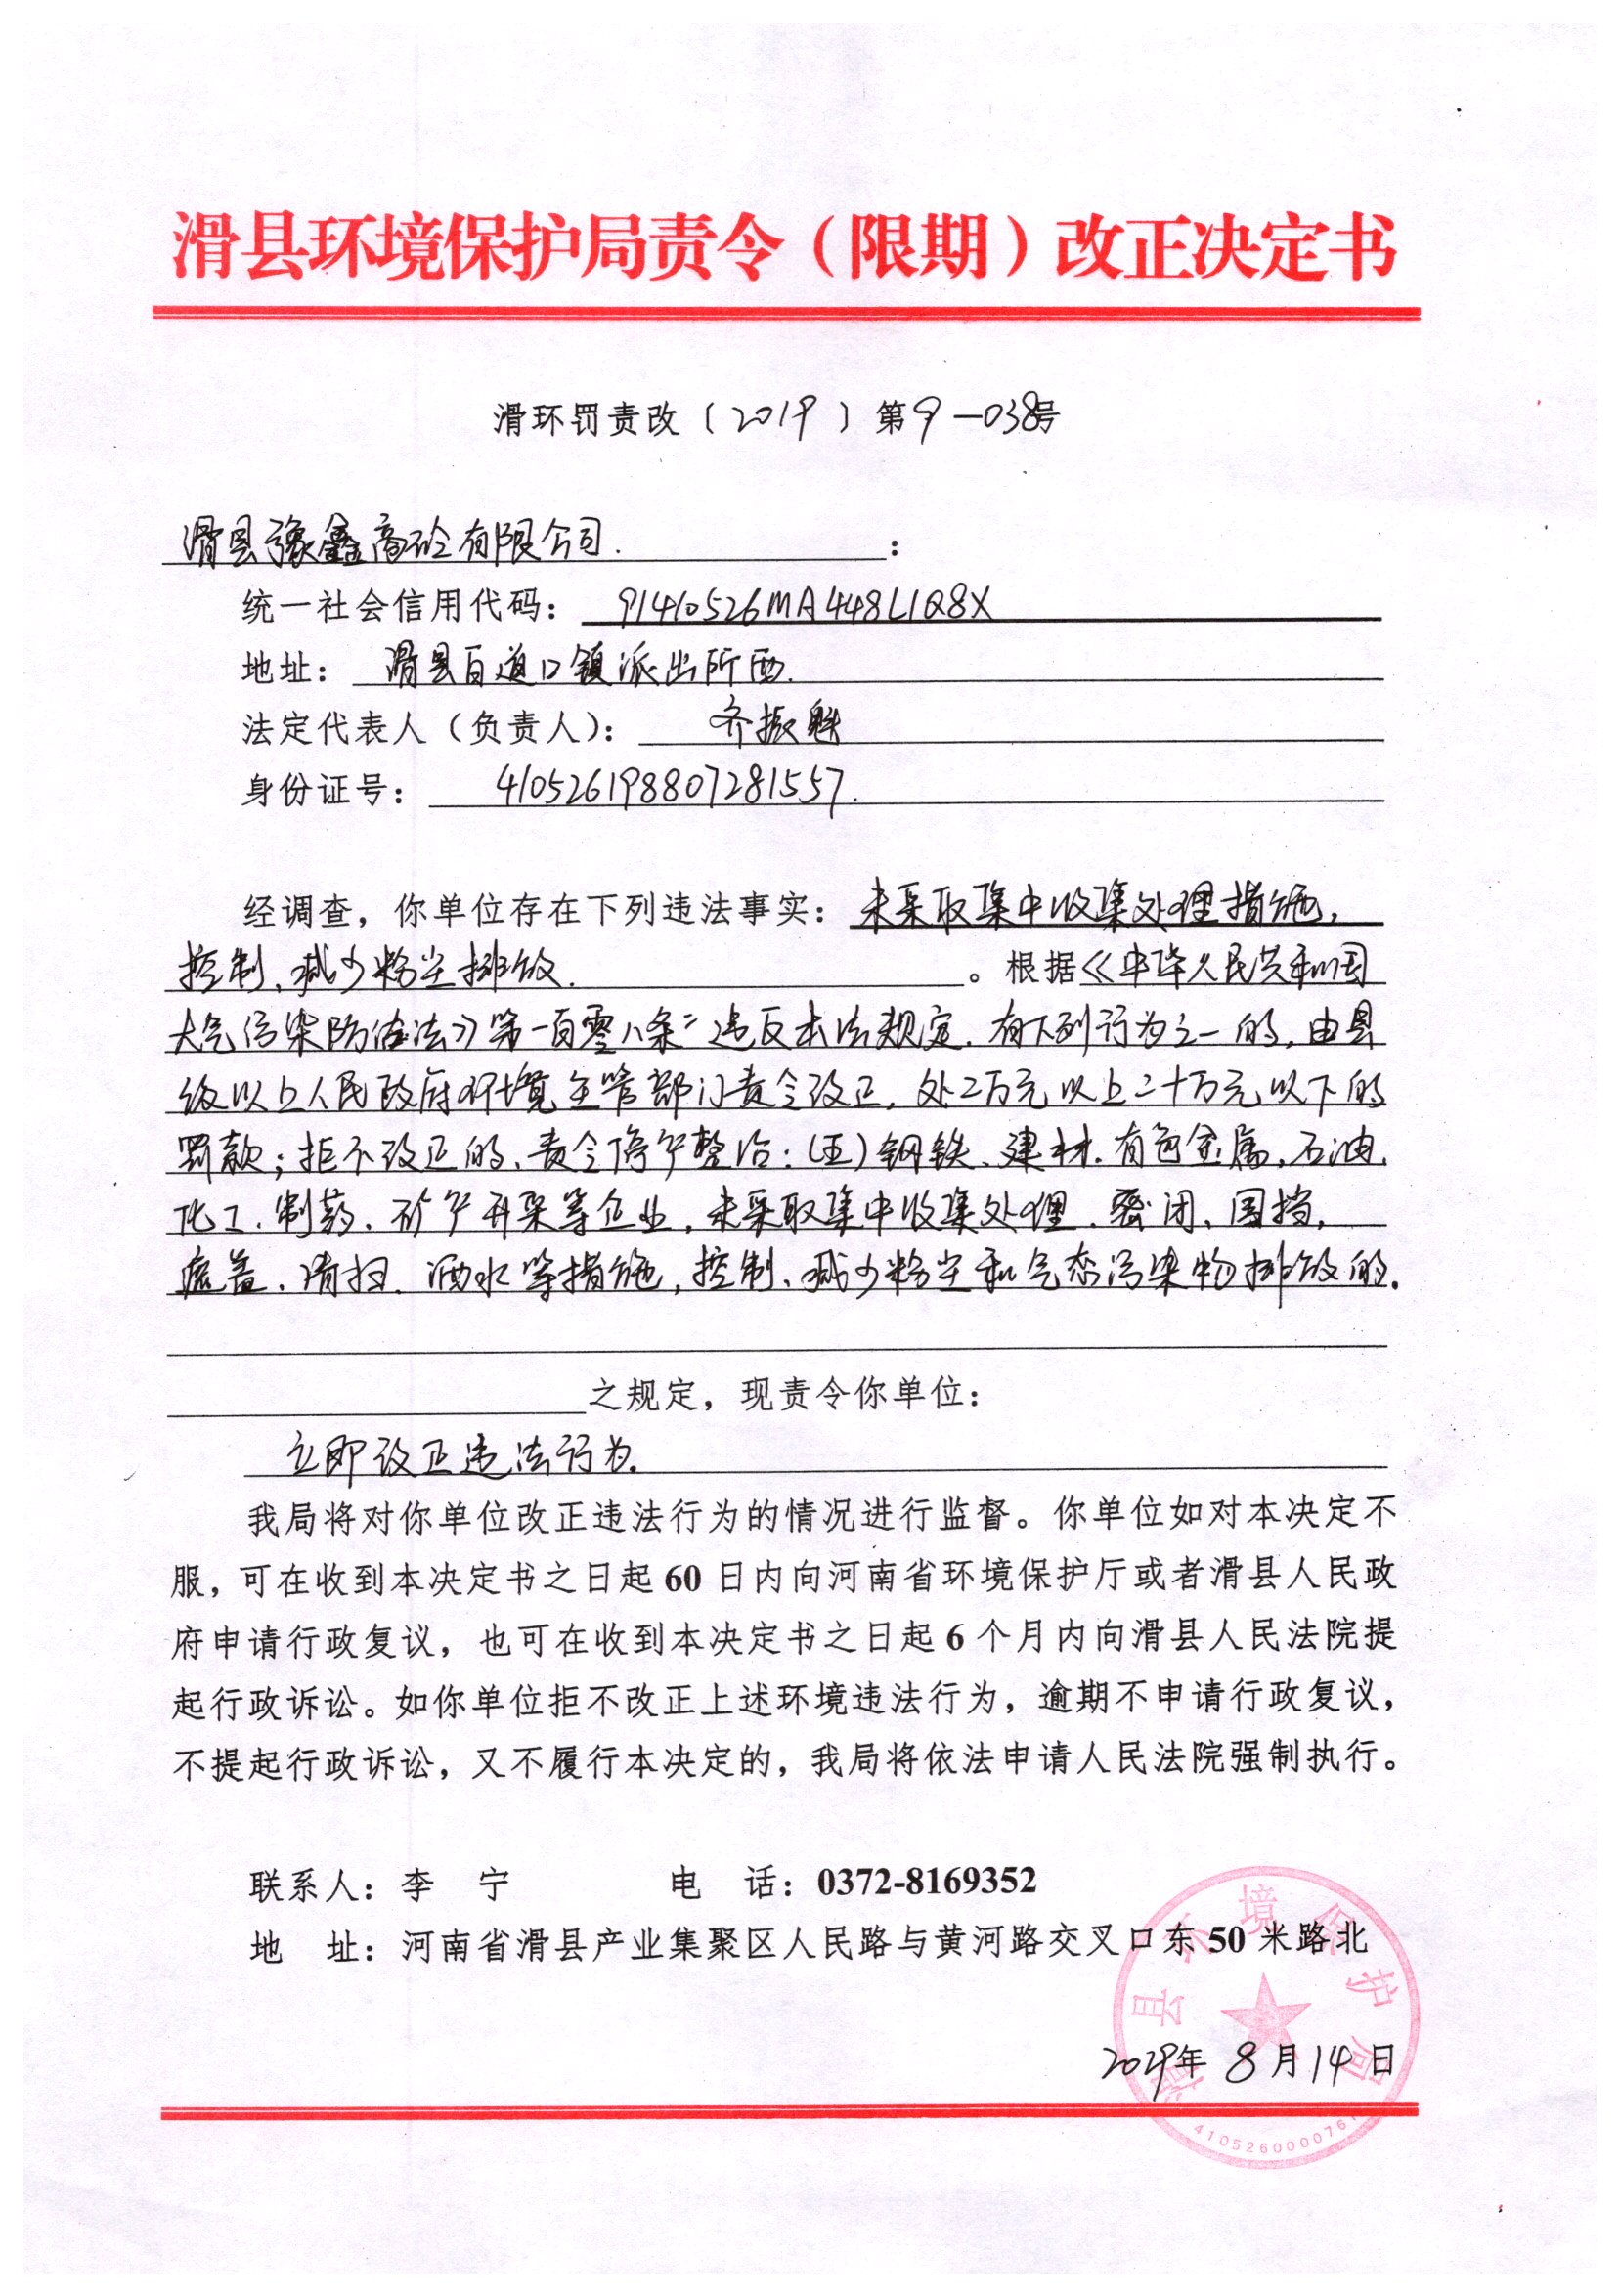 滑县环境保护局责令（限期）改正决定书
滑环罚责改〔2019〕第9-038号
滑县豫鑫商砼有限公司.：
统一社会信用代码：91410526MA448L1Q8X
地址：滑县百道口镇派出所西.
法定代表人（负责人）：齐振魁
身份证号：410526198807281557.
经调查，你单位存在下列违法事实：未采取集中收集处理措施，
控制、减少粉尘排放.。根据《中华人民共和国
大气污染防治法》第一百零八条“违反本法规定，有下列行为之一的，由县
级以上人民政府环境主管部门责令改正，处二万元以上二十万元以下的
罚款；拒不改正的、责令停产整治：(五)钢铁、建材、有色金属、石油、
化工、制药、矿产开采等企业，未采取集中收集处理、密闭、围挡、
遮盖、清扫、洒水等措施，控制、减少粉尘和气态污染物排放的.
之规定，现责令你单位：
立即改正违法行为.
我局将对你单位改正违法行为的情况进行监督。你单位如对本决定不
服，可在收到本决定书之日起 60 日内向河南省环境保护厅或者滑县人民政
府申请行政复议，也可在收到本决定书之日起 6 个月内向滑县人民法院提
起行政诉讼。如你单位拒不改正上述环境违法行为，逾期不申请行政复议，
不提起行政诉讼，又不履行本决定的，我局将依法申请人民法院强制执行。
联系人：李 宁 电 话：0372-8169352
地 址：河南省滑县产业集聚区人民路与黄河路交叉口东 50 米路北
滑县环境保护局
2019年 8月14日